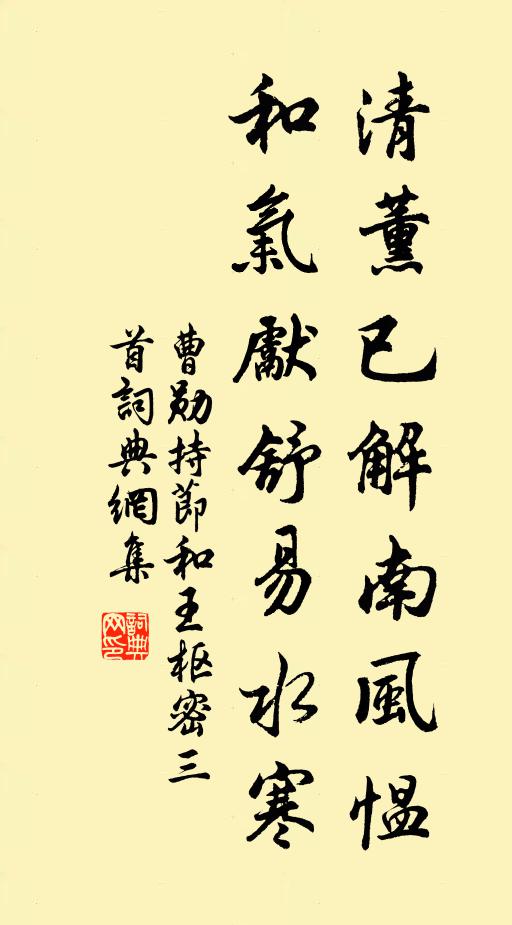 清薰已解南風慍
和氣獻舒易水寒
曹勋持節和王枢密三
首詞典網集
詞典网印